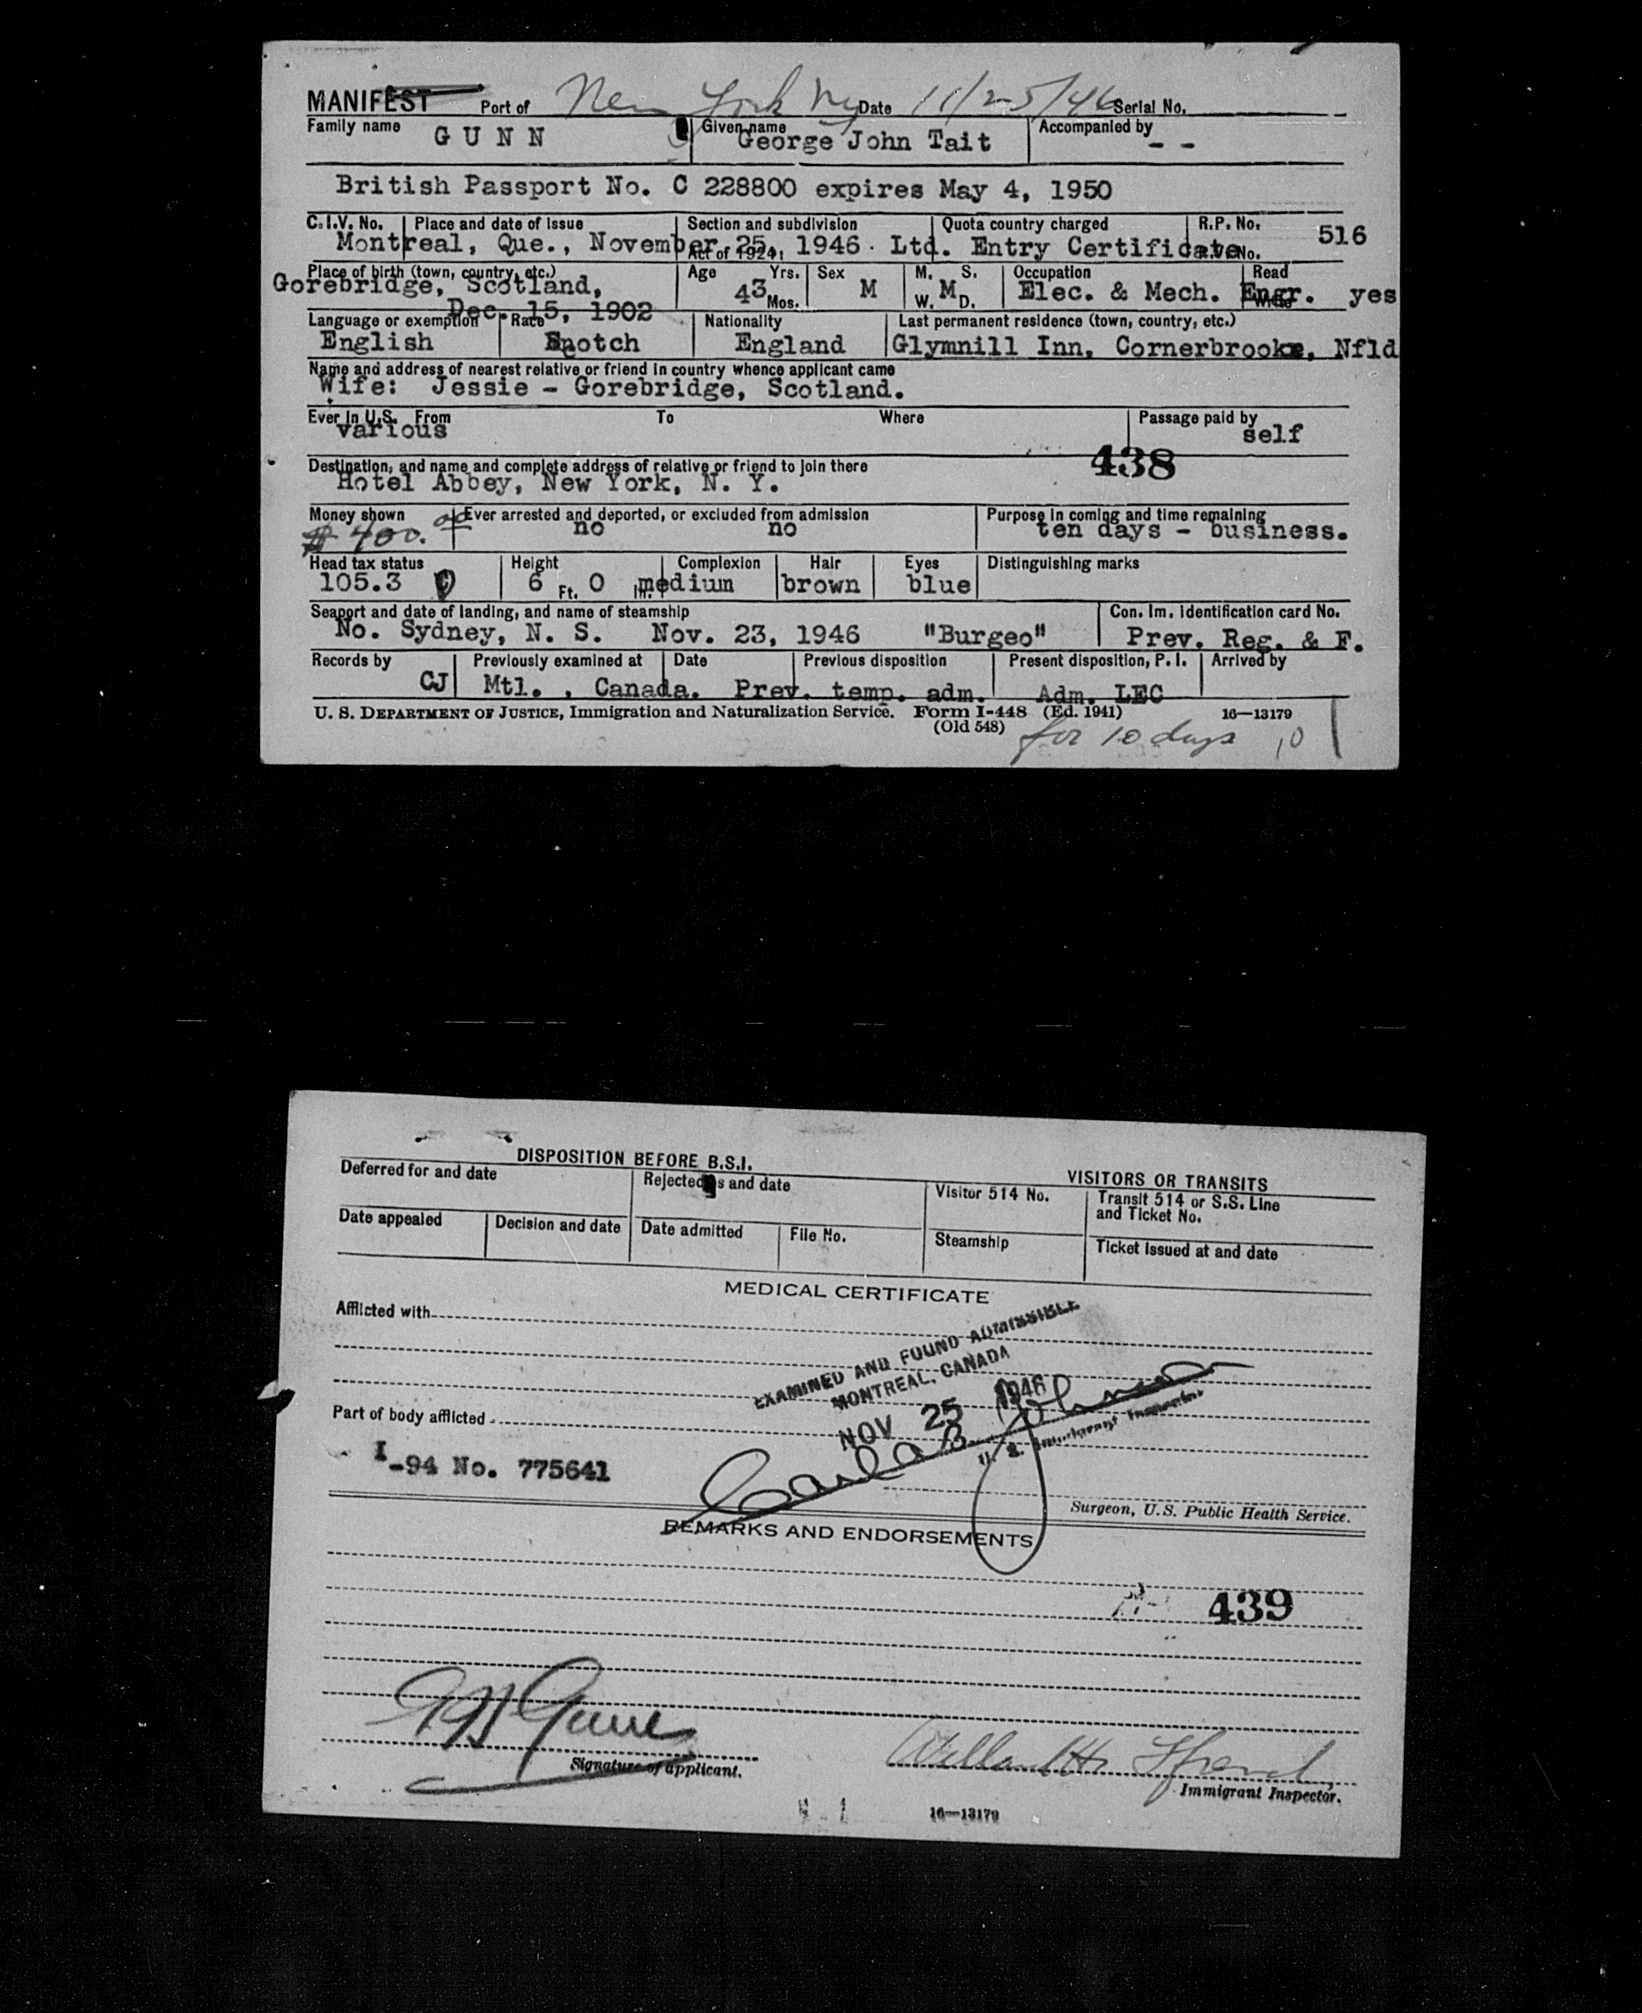 MANIFEST Port of New York NY Date 11/25/46 Serial No.
Family name GUNN Given name George John Tait Accompanied by - -
British Passport No. C 228800 expires May 4, 1950
C.I.V. No. Place and date of issue Section and subdivision Quota country charged R.P. No. 516
Montreal, Que., November 25, 1946 Ltd. Entry Certificate
Act of 1924, No.
Place of birth (town, country, etc.) Age Yrs. Sex M. S. Occupation Read
Gorebridge, Scotland, 43 Mos. M W. M D. Elec. & Mech. Engr. yes
Dec. 15, 1902
Language or exemption Race Nationality Last permanent residence (town, country, etc.)
English Scotch England Glymnill Inn, Cornerbrook, Nfld
Name and address of nearest relative or friend in country whence applicant came
Wife: Jessie - Gorebridge, Scotland.
Ever in U.S. From To Where Passage paid by
various self
438
Destination, and name and complete address of relative or friend to join there
Hotel Abbey, New York, N. Y.
Money shown Ever arrested and deported, or excluded from admission Purpose in coming and time remaining
$400.00 no no ten days - business.
Head tax status Height Complexion Hair Eyes Distinguishing marks
105.3 6 Ft. 0 In. medium brown blue
Seaport and date of landing, and name of steamship Con. Im. Identification card No.
No. Sydney, N. S. Nov. 23, 1946 "Burgeo" Prev. Reg. & F.
Records by Previously examined at Date Previous disposition Present disposition, P. I. Arrived by
CJ Mtl. , Canada. Prev. temp. adm. Adm. LEC
U. S. DEPARTMENT OF JUSTICE, Immigration and Naturalization Service. Form I-448 (Ed. 1941) 16—13179
(Old 548)
for 10 days
DISPOSITION BEFORE B.S.I. VISITORS OR TRANSITS
Deferred for and date Rejected as and date Visitor 514 No. Transit 514 or S.S. Line
and Ticket No.
Date appealed Decision and date Date admitted File No. Steamship Ticket issued at and date
MEDICAL CERTIFICATE
Afflicted with
EXAMINED AND FOUND ADMISSIBLE
MONTREAL, CANADA
NOV 25 1946
U. S. Immigrant Inspector
Part of body afflicted
I-94 No. 775641
Surgeon, U.S. Public Health Service.
REMARKS AND ENDORSEMENTS
439
Gunn
Signature of applicant.
Immigrant Inspector.
16—13179